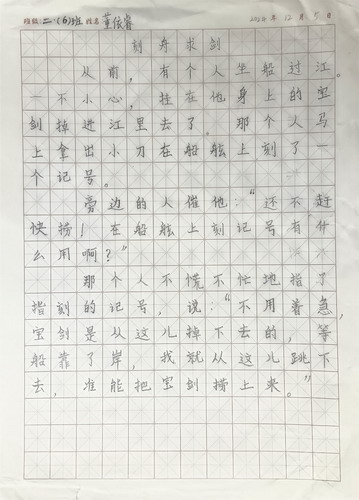 班级 二.(6)班 姓名 董依睿 2024 年 12 月 5 日
刻舟求剑
从前，有个人坐船过江。
一不小心，挂在他身上的宝
剑掉进江里去了。那个人马
上拿出小刀在船舷上刻了一
个记号。
旁边的人催他：“还不赶
快捞！在船舷上刻记号有什
么用啊？”
那个人不慌不忙地指了
指刻的记号，说：“不用着急，
宝剑是从这儿掉下去的，等
船靠了岸，我就从这儿跳下
去，准能把宝剑捞上来。”